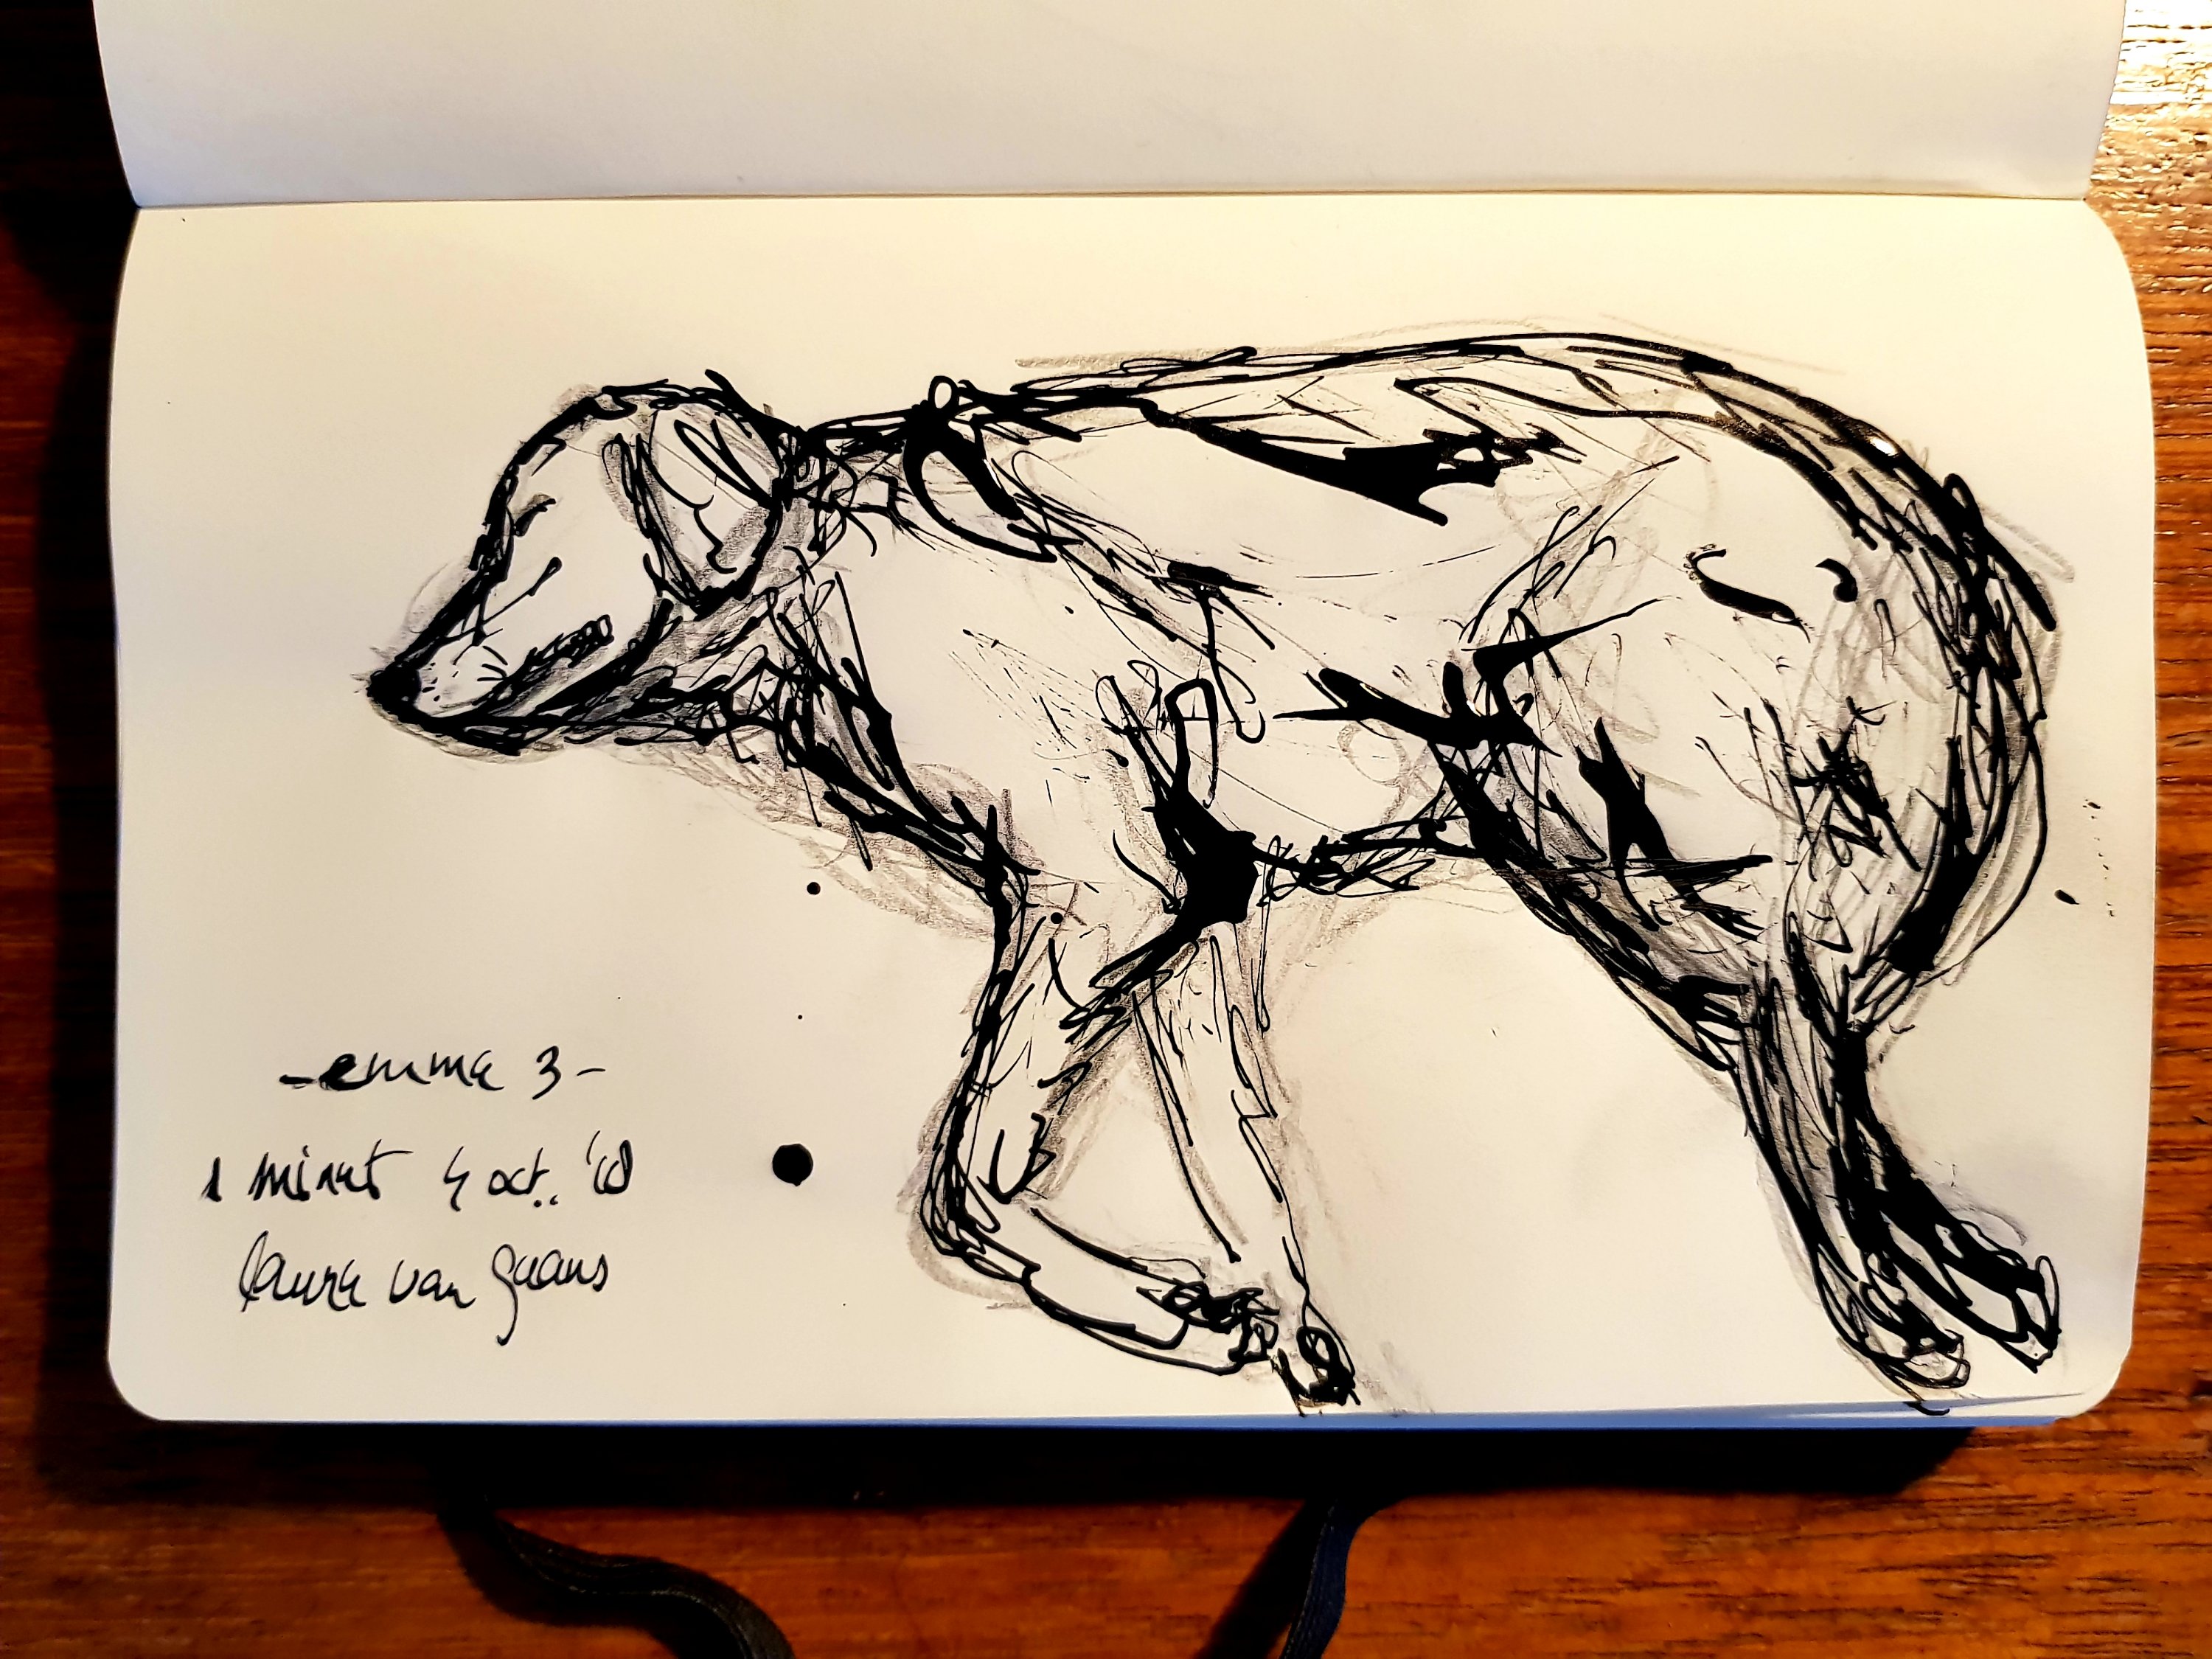 -emma 3-
1 minut 4 oct. '18
laura van gaans